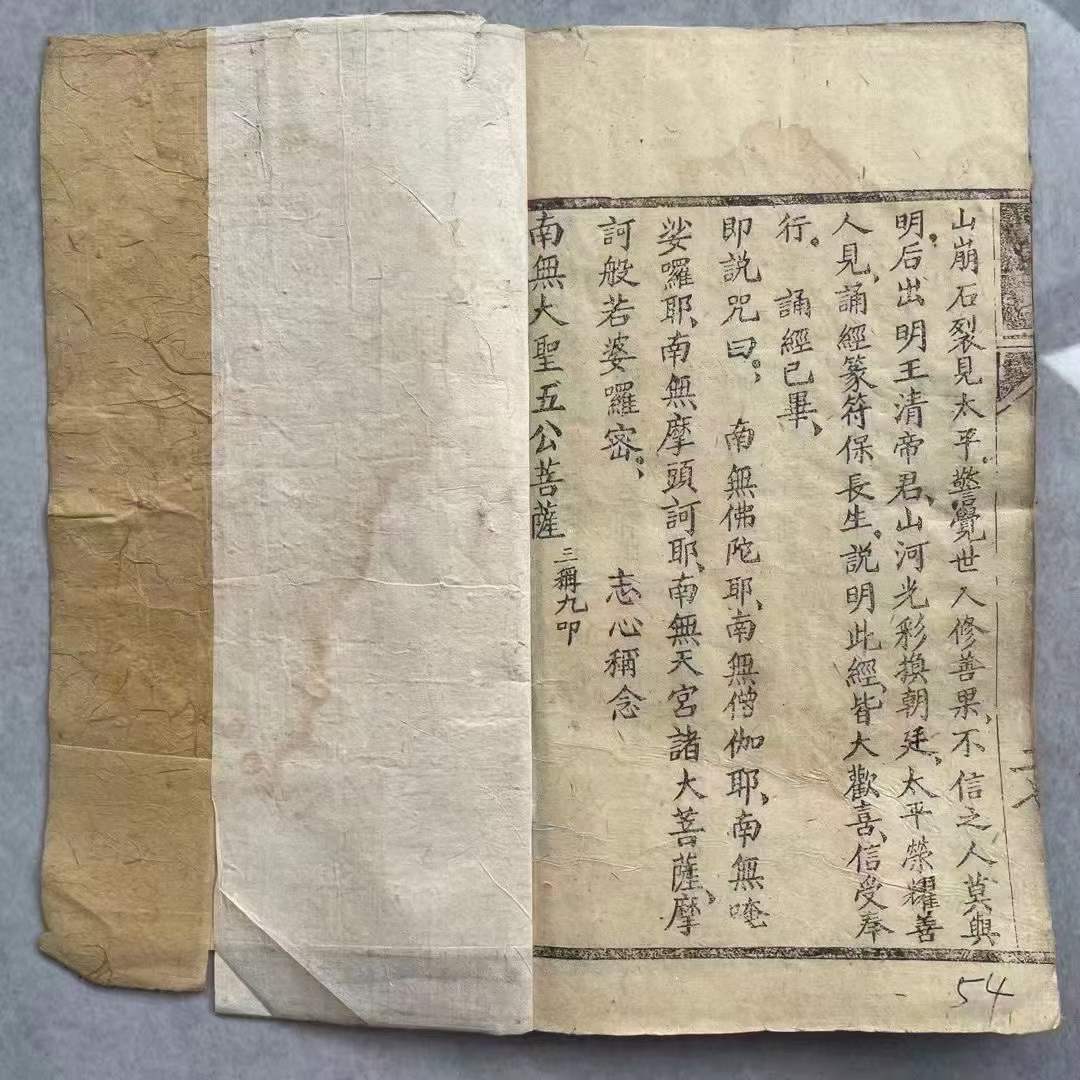 山崩石裂見太平。警覺世人修善果、不信之人莫與
明。后出明王清帝君、山河光彩換朝廷、太平榮耀善
人見、誦經篆符保長生。説明此經、皆大歡喜、信受奉
行。 誦經已畢、
即説咒曰。、 南無佛陀耶、南無僧伽耶、南無唵
娑囉耶、南無摩頭訶耶、南無天宮諸大菩薩、摩
訶般若婆囉密。、 志心稱念
南無大聖五公菩薩 三稱九叩
54